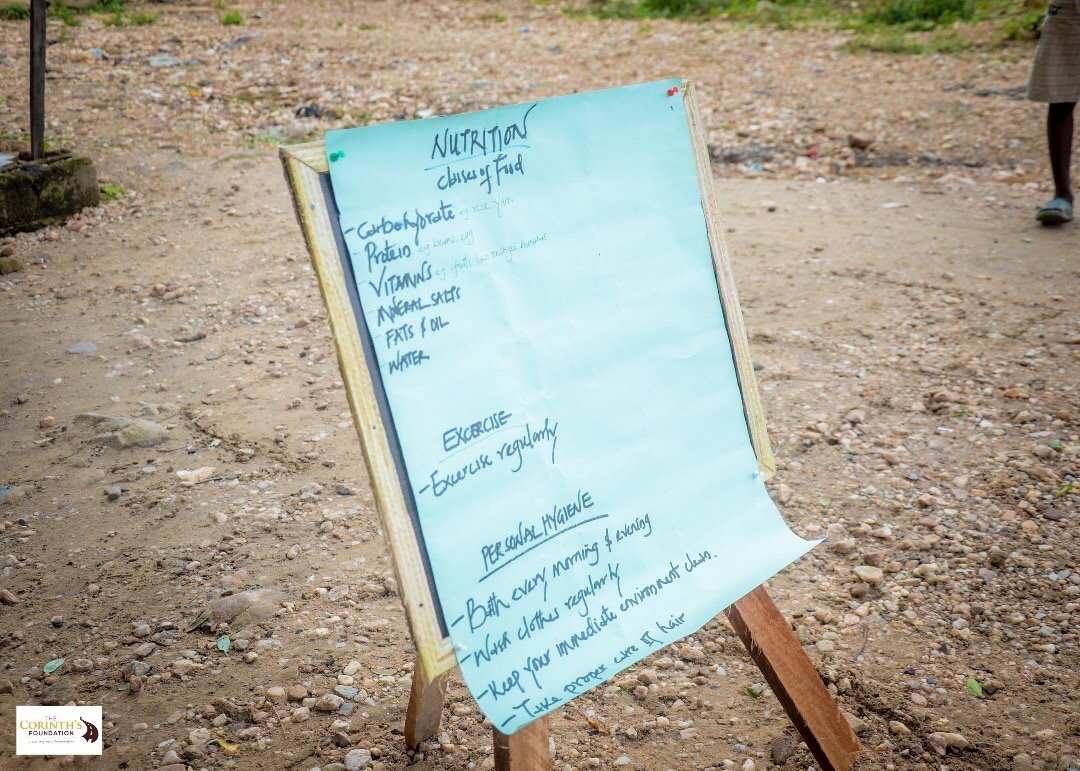 NUTRITION
Classes of Food
- Carbohydrate eg rice, yam
Protein eg beans, egg
VITAMINS eg fruits like oranges, bananas
MINERAL SALTS
FATS & OIL
WATER
EXCERCISE
- Excercise regularly
PERSONAL HYGIENE
- Bath every morning & evening
- Wash clothes regularly
- Keep your immediate environment clean.
- Take proper care of hair
THE
CORINTH'S
FOUNDATION